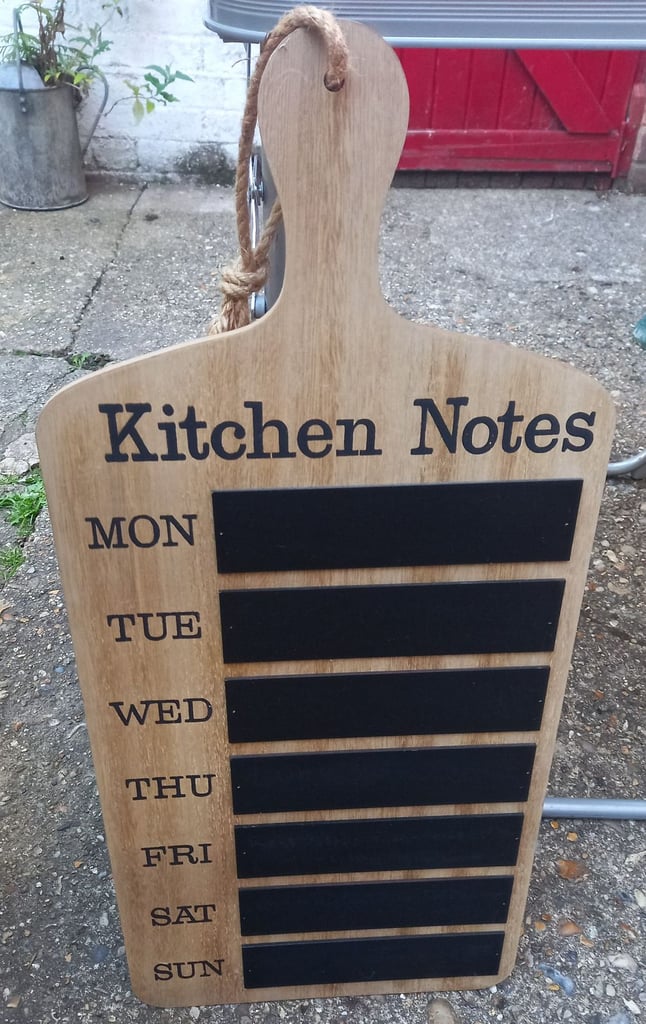 Kitchen Notes
MON
TUE
WED
THU
FRI
SAT
SUN